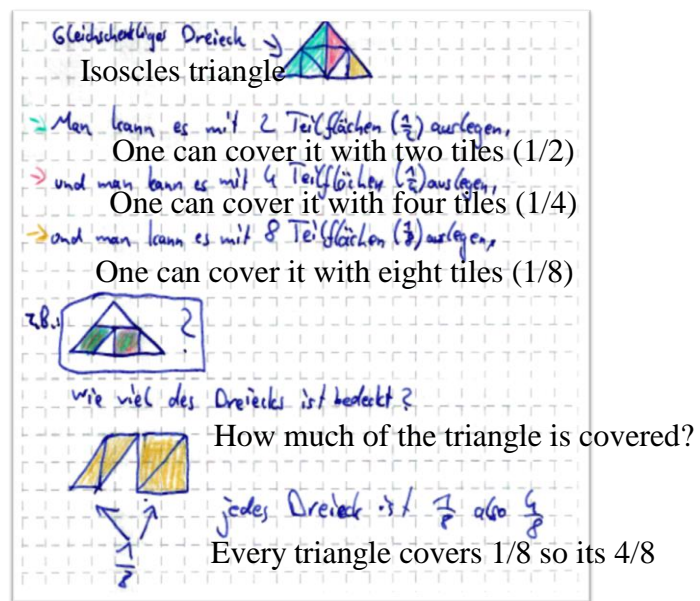 Gleichschenkliges Dreieck →
Isoscles triangle
→ Man kann es mit 2 Teilflächen (1/2) auslegen,
One can cover it with two tiles (1/2)
→ und man kann es mit 4 Teilflächen auslegen,
One can cover it with four tiles (1/4)
→ und man kann es mit 8 Teilflächen (1/8) auslegen,
One can cover it with eight tiles (1/8)
z.B.: ?
Wie viel des Dreiecks ist bedeckt?
How much of the triangle is covered?
jedes Dreieck ist 1/8 also 4/8
Every triangle covers 1/8 so its 4/8
1/8